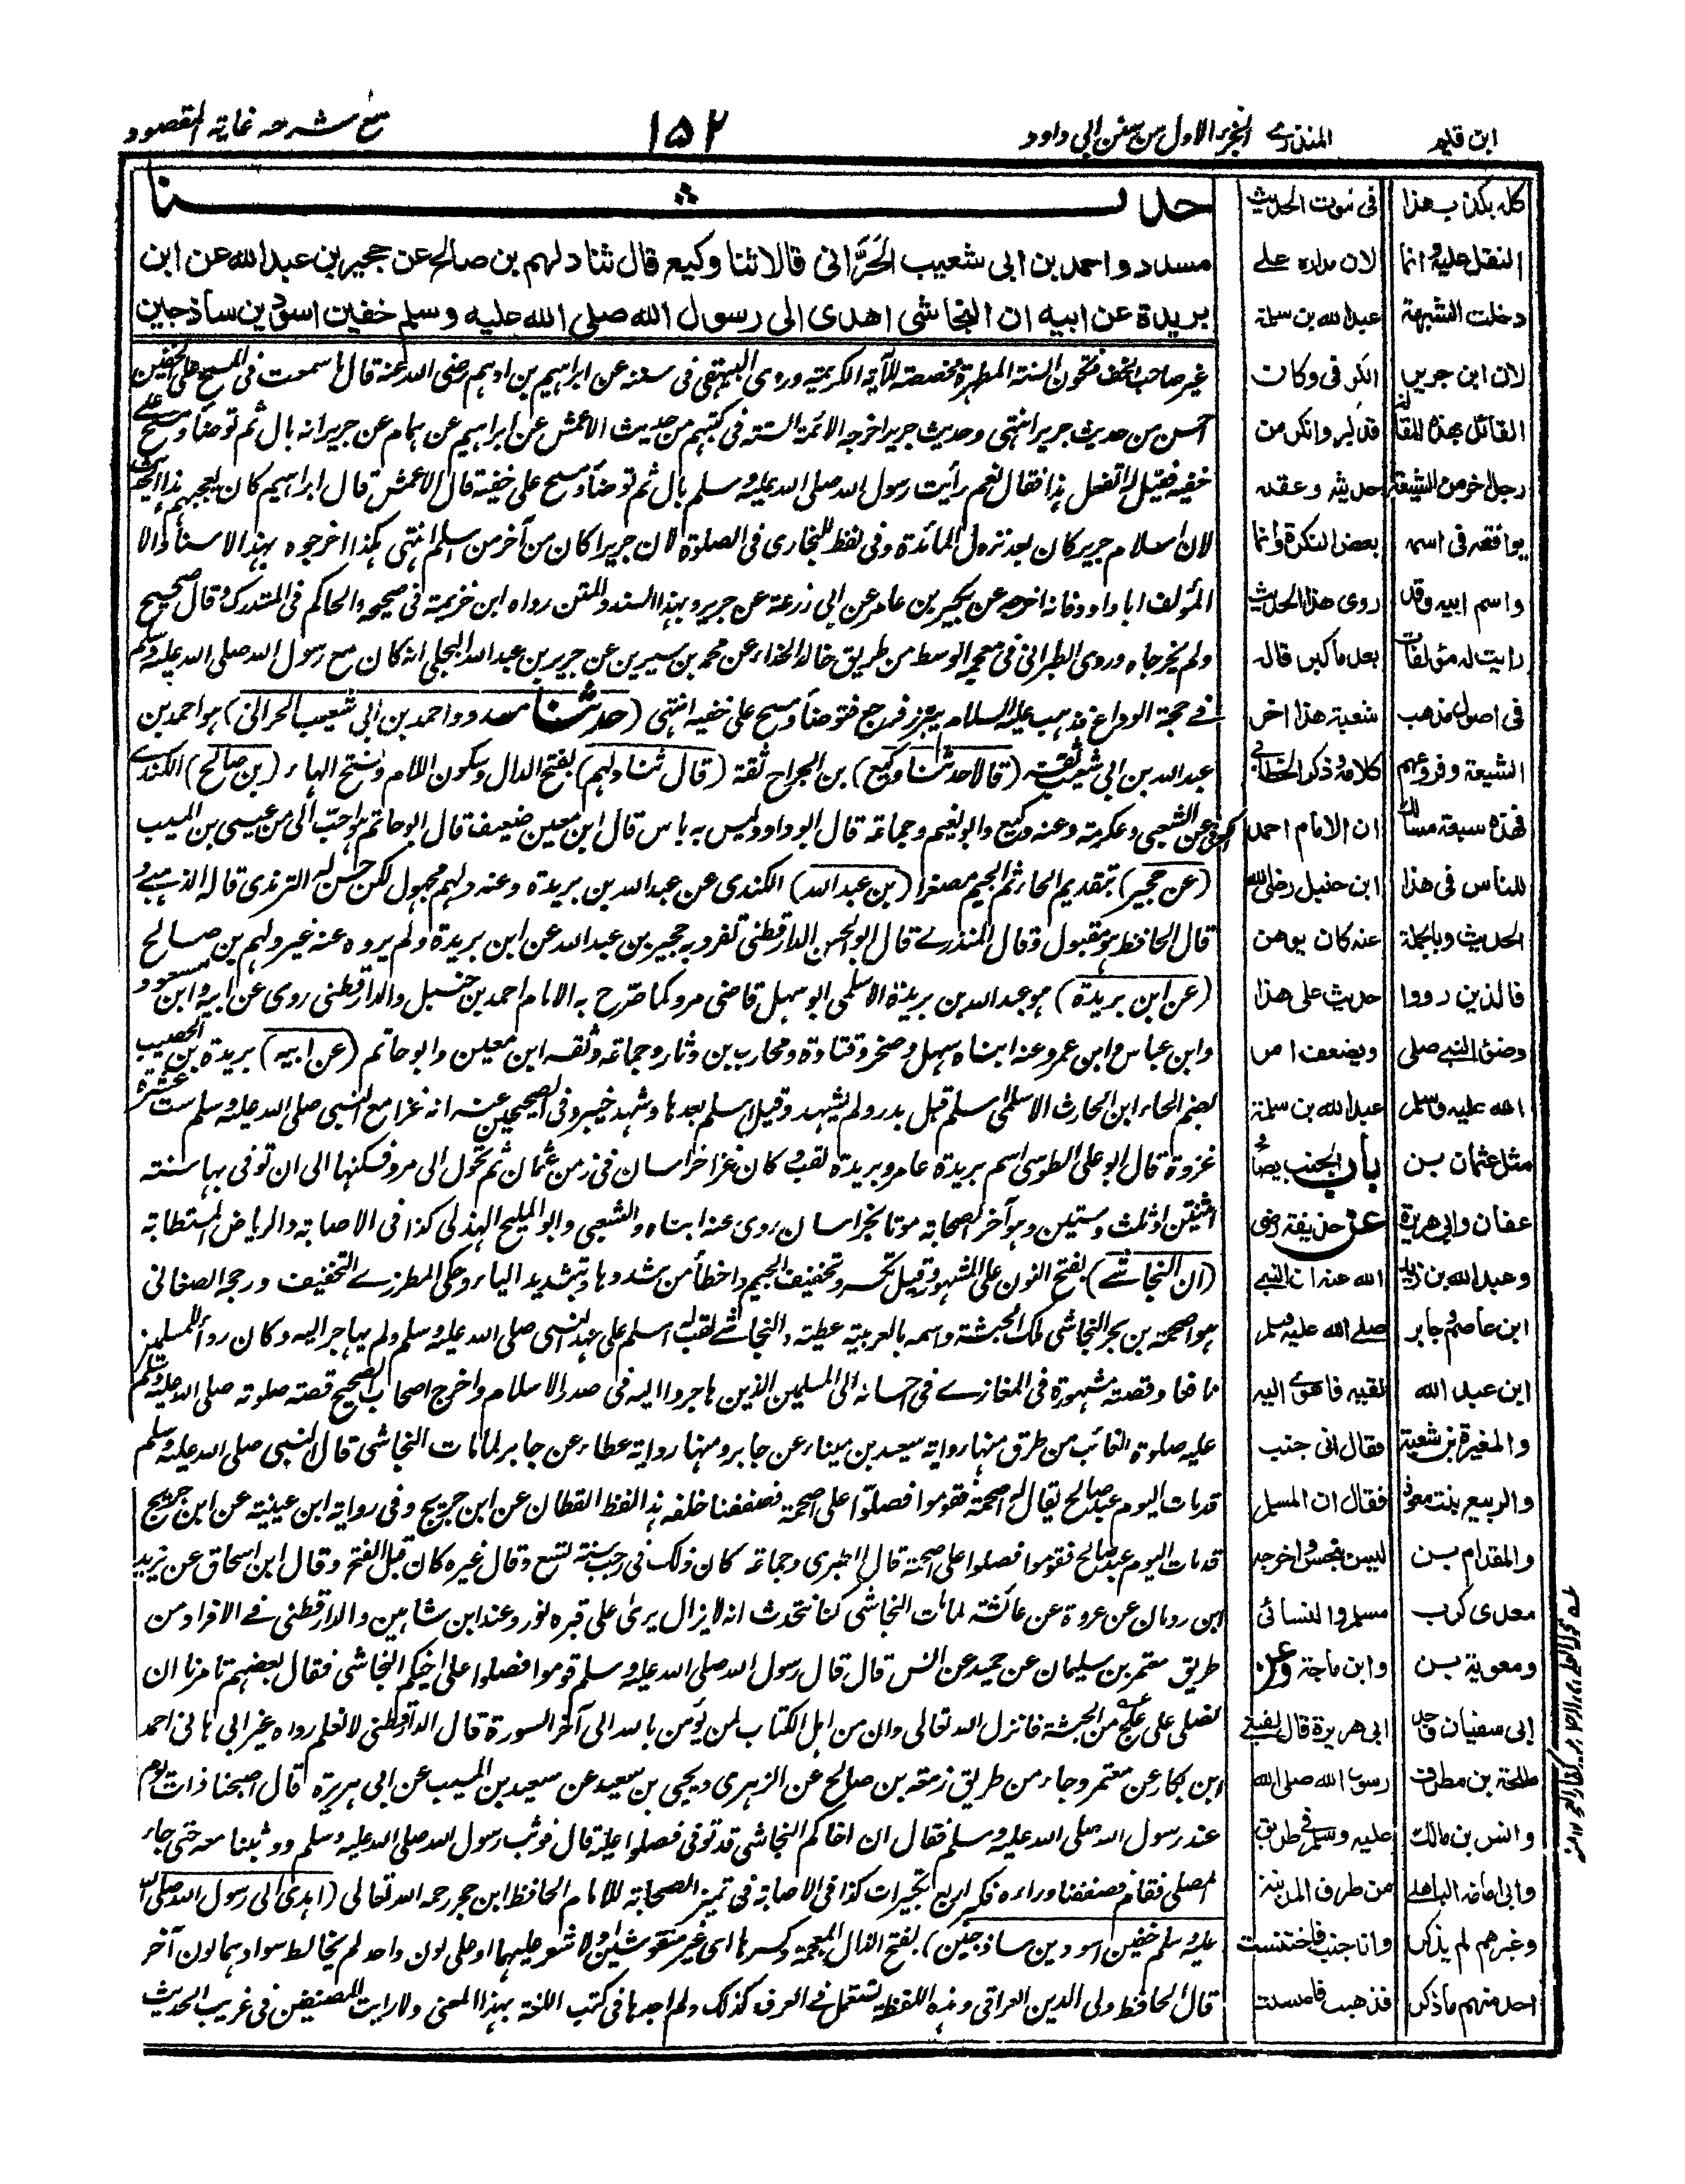 ابن قيم
المنذري
الجزء الاول من سنن ابي داود
١٥٢
مع شرحه غاية المقصود
حدثنا
مسدد واحمد بن ابى شعيب الحَرَّانى قالا ثنا وكيع قال ثنا دلهم بن صالح عن حجير بن عبد الله عن ابن
بريدة عن ابيه ان النجاشى اهدى الى رسول الله صلى الله عليه وسلم خفين اسودين ساذجين
غير صاحب الخف فتكون السنة المطهرة مخصصة للآية الكريمة وروى البيهقى فى سننه عن ابراهيم بن ادهم رضى الله عنه قال ما سمعت فى المسح على الخفين
احسن من حديث جرير انتهى وحديث جرير اخرجه الائمة الستة فى كتبهم من حديث الاعمش عن ابراهيم عن همام عن جرير انه بال ثم توضأ ومسح على
خفيه فقيل له اتفعل هذا فقال نعم رأيت رسول الله صلى الله عليه وسلم بال ثم توضأ ومسح على خفيه قال الاعمش قال ابراهيم كان يعجبهم هذا الحديث
لان اسلام جرير كان بعد نزول المائدة وفى لفظ للبخارى فى الصلوة لان جريرا كان من آخر من اسلم انتهى هكذا اخرجوه بهذا الاسناد الا
المؤلف ابا داود فانه اخرجه عن بكير بن عامر عن ابى زرعة عن جرير وبهذا السند والمتن رواه ابن خزيمة فى صحيحه والحاكم فى المستدرك وقال صحيح
ولم يخرجاه وروى الطبرانى فى معجمه الوسط من طريق خالد الحذاء عن محمد بن سيرين عن جرير بن عبد الله البجلى انه كان مع رسول الله صلى الله عليه وسلم
فى حجة الوداع فذهب عليه السلام يتبرز فرجع فتوضأ ومسح على خفيه انتهى (حدثنا مسدد واحمد بن ابى شعيب الحرانى) هو احمد بن
عبد الله بن ابى شعيب ثقة (قالا حدثنا وكيع) بن الجراح ثقة (قال ثنا دلهم) بفتح الدال وسكون اللام وفتح الهاء (بن صالح) الكندى
الكوفى عن الشعبى وعكرمة وعنه وكيع وابو نعيم وجماعة قال ابو داود ليس به باس قال ابن معين ضعيف قال ابو حاتم هو احب الى من عيسى بن المسيب
(عن حجير) بتقديم الحاء ثم الجيم مصغرا (بن عبد الله) الكندى عن عبد الله بن بريدة وعنه دلهم مجهول لكن حسن له الترمذى قاله الذهبى و
قال الحافظ هو مقبول وقال المنذرى قال ابو الحسن الدارقطنى تفرد به حجير بن عبد الله عن ابن بريدة ولم يروه عنه غير دلهم بن صالح
(عن ابن بريدة) هو عبد الله بن بريدة الاسلمى ابو سهل قاضى مرو كما صرح به الامام احمد بن حنبل والدارقطنى روى عن ابيه وابن مسعود
وابن عباس وابن عمر وعنه ابناه سهل وصخر وقتادة ومحارب بن دثار وجماعة وثقه ابن معين وابو حاتم (عن ابيه) بريدة بن الحصيب
بضم الحاء ابن الحارث الاسلمى اسلم قبل بدر ولم يشهد وقيل اسلم بعدها وشهد خيبر وفى الصحيحين عنه انه غزا مع النبى صلى الله عليه وسلم ست عشرة
غزوة قال ابو على الطوسى اسم بريدة عامر وبريدة لقب وكان غزا خراسان فى زمن عثمان ثم تحول الى مرو فسكنها الى ان توفى بها سنة
اثنتين او ثلث وستين وهو آخر الصحابة موتا بخراسان روى عنه ابناه والشعبى وابو المليح الهذلى كذا فى الاصابة والرياض المستطابة
(ان النجاشى) بفتح النون على المشهور وقيل تكسر وتخفيف الجيم واخطأ من شددها وتشديد الياء وحكى المطرزى التخفيف ورجحه الصغانى
هو اصحمة بن بحر النجاشى ملك الحبشة واسمه بالعربية عطية والنجاشى لقب له اسلم على عهد النبى صلى الله عليه وسلم ولم يهاجر اليه وكان ردأ للمسلمين
نافعا وقصته مشهورة فى المغازى فى احسانه الى المسلمين الذين هاجروا اليه فى صدر الاسلام واخرج اصحاب الصحيح قصة صلوته صلى الله عليه وسلم
عليه صلوة الغائب من طرق منها رواية سعيد بن ميناء عن جابر ومنها رواية عطاء عن جابر لما مات النجاشى قال النبى صلى الله عليه وسلم
قد مات اليوم عبد صالح يقال له اصحمة فقوموا فصلوا على اصحمة فصففنا خلفه هذا لفظ القطان عن ابن جريج وفى رواية ابن عيينة عن ابن جريج
قد مات اليوم عبد صالح فقوموا فصلوا على اصحمة قال الطبرى وجماعة كان ذلك فى رجب سنة تسع وقال غيره كان قبل الفتح وقال ابن اسحاق عن يزيد
ابن رومان عن عروة عن عائشة لما مات النجاشى كنا نتحدث انه لا يزال يرى على قبره نور وعند ابن شاهين والدارقطنى فى الافراد من
طريق معتمر بن سليمان عن حميد عن انس قال قال رسول الله صلى الله عليه وسلم قوموا فصلوا على اخيكم النجاشى فقال بعضهم تامرنا ان
نصلى على علج من الحبشة فانزل الله تعالى وان من اهل الكتاب لمن يؤمن بالله الى آخر السورة قال الدارقطنى لا نعلم رواه غير ابى هانى احمد
ابن بكار عن معتمر وجاء من طريق زمعة بن صالح عن الزهرى ويحيى بن سعيد عن سعيد بن المسيب عن ابى هريرة قال اصبحنا ذات يوم
عند رسول الله صلى الله عليه وسلم فقال ان اخاكم النجاشى قد توفى فصلوا عليه قال فوثب رسول الله صلى الله عليه وسلم ووثبنا معه حتى جاء
المصلى فقام فصففنا وراءه فكبر اربع تكبيرات كذا فى الاصابة فى تميز الصحابة للامام الحافظ ابن حجر رحمه الله تعالى (اهدى الى رسول الله صلى الله
عليه وسلم خفين اسودين ساذجين) بفتح الذال المعجمة وكسرها اى غير منقوشين ولا شعر عليهما او على لون واحد لم يخالط سوادهما لون آخر
قال الحافظ ولى الدين العراقى وهذه اللفظة تستعمل فى العرف كذلك ولم اجدها فى كتب اللغة بهذا المعنى ولا رايت المصنفين فى غريب الحديث
فى ثبوت الحديث
لان مداره على
عبد الله بن سلمة
الكوفى وكان
قد كبر وانكر من
حديثه وعقله
بعض النكرة وانما
روى هذا الحديث
بعد ما كبر قاله
شعبة هذا اخر
كلامه وذكر الخطابى
ان الامام احمد
ابن حنبل رضى الله
عنه كان يوهن
حديث على هذا
ويضعف امر
عبد الله بن سلمة
باب الجنب يصافح
عن حذيفة رضى
الله عنه ان النبى
صلى الله عليه وسلم
لقيه فاهوى اليه
فقال انى جنب
فقال ان المسلم
ليس بنجس واخرجه
مسلم والنسائى
وابن ماجة وعن
ابى هريرة قال لقينى
رسول الله صلى الله
عليه وسلم فى طريق
من طرق المدينة
وانا جنب فاختنست
فذهبت فاغتسلت
كله يكذب هذا
النقل عليه وانما
دخلت الشبهة
لان ابن جرير
القائل بهذه المقالة
رجل اخر من الشيعة
يوافقه فى اسمه
واسم ابيه وقد
رايت له مؤلفات
فى اصول مذهب
الشيعة وفروعهم
فهذه سبعة مسالك
للناس فى هذا
الحديث وبالجملة
فالذين رووا
وضوء النبى صلى
الله عليه وسلم
مثل عثمان بن
عفان وابى هريرة
وعبد الله بن زيد
ابن عاصم وجابر
ابن عبد الله
والمغيرة بن شعبة
والربيع بنت معوذ
والمقدام بن
معدى كرب
ومعوية بن
ابى سفيان وجد
طلحة بن مصرف
وانس بن مالك
وابى امامة الباهلى
وغيرهم لم يذكر
احد منهم ما ذكر